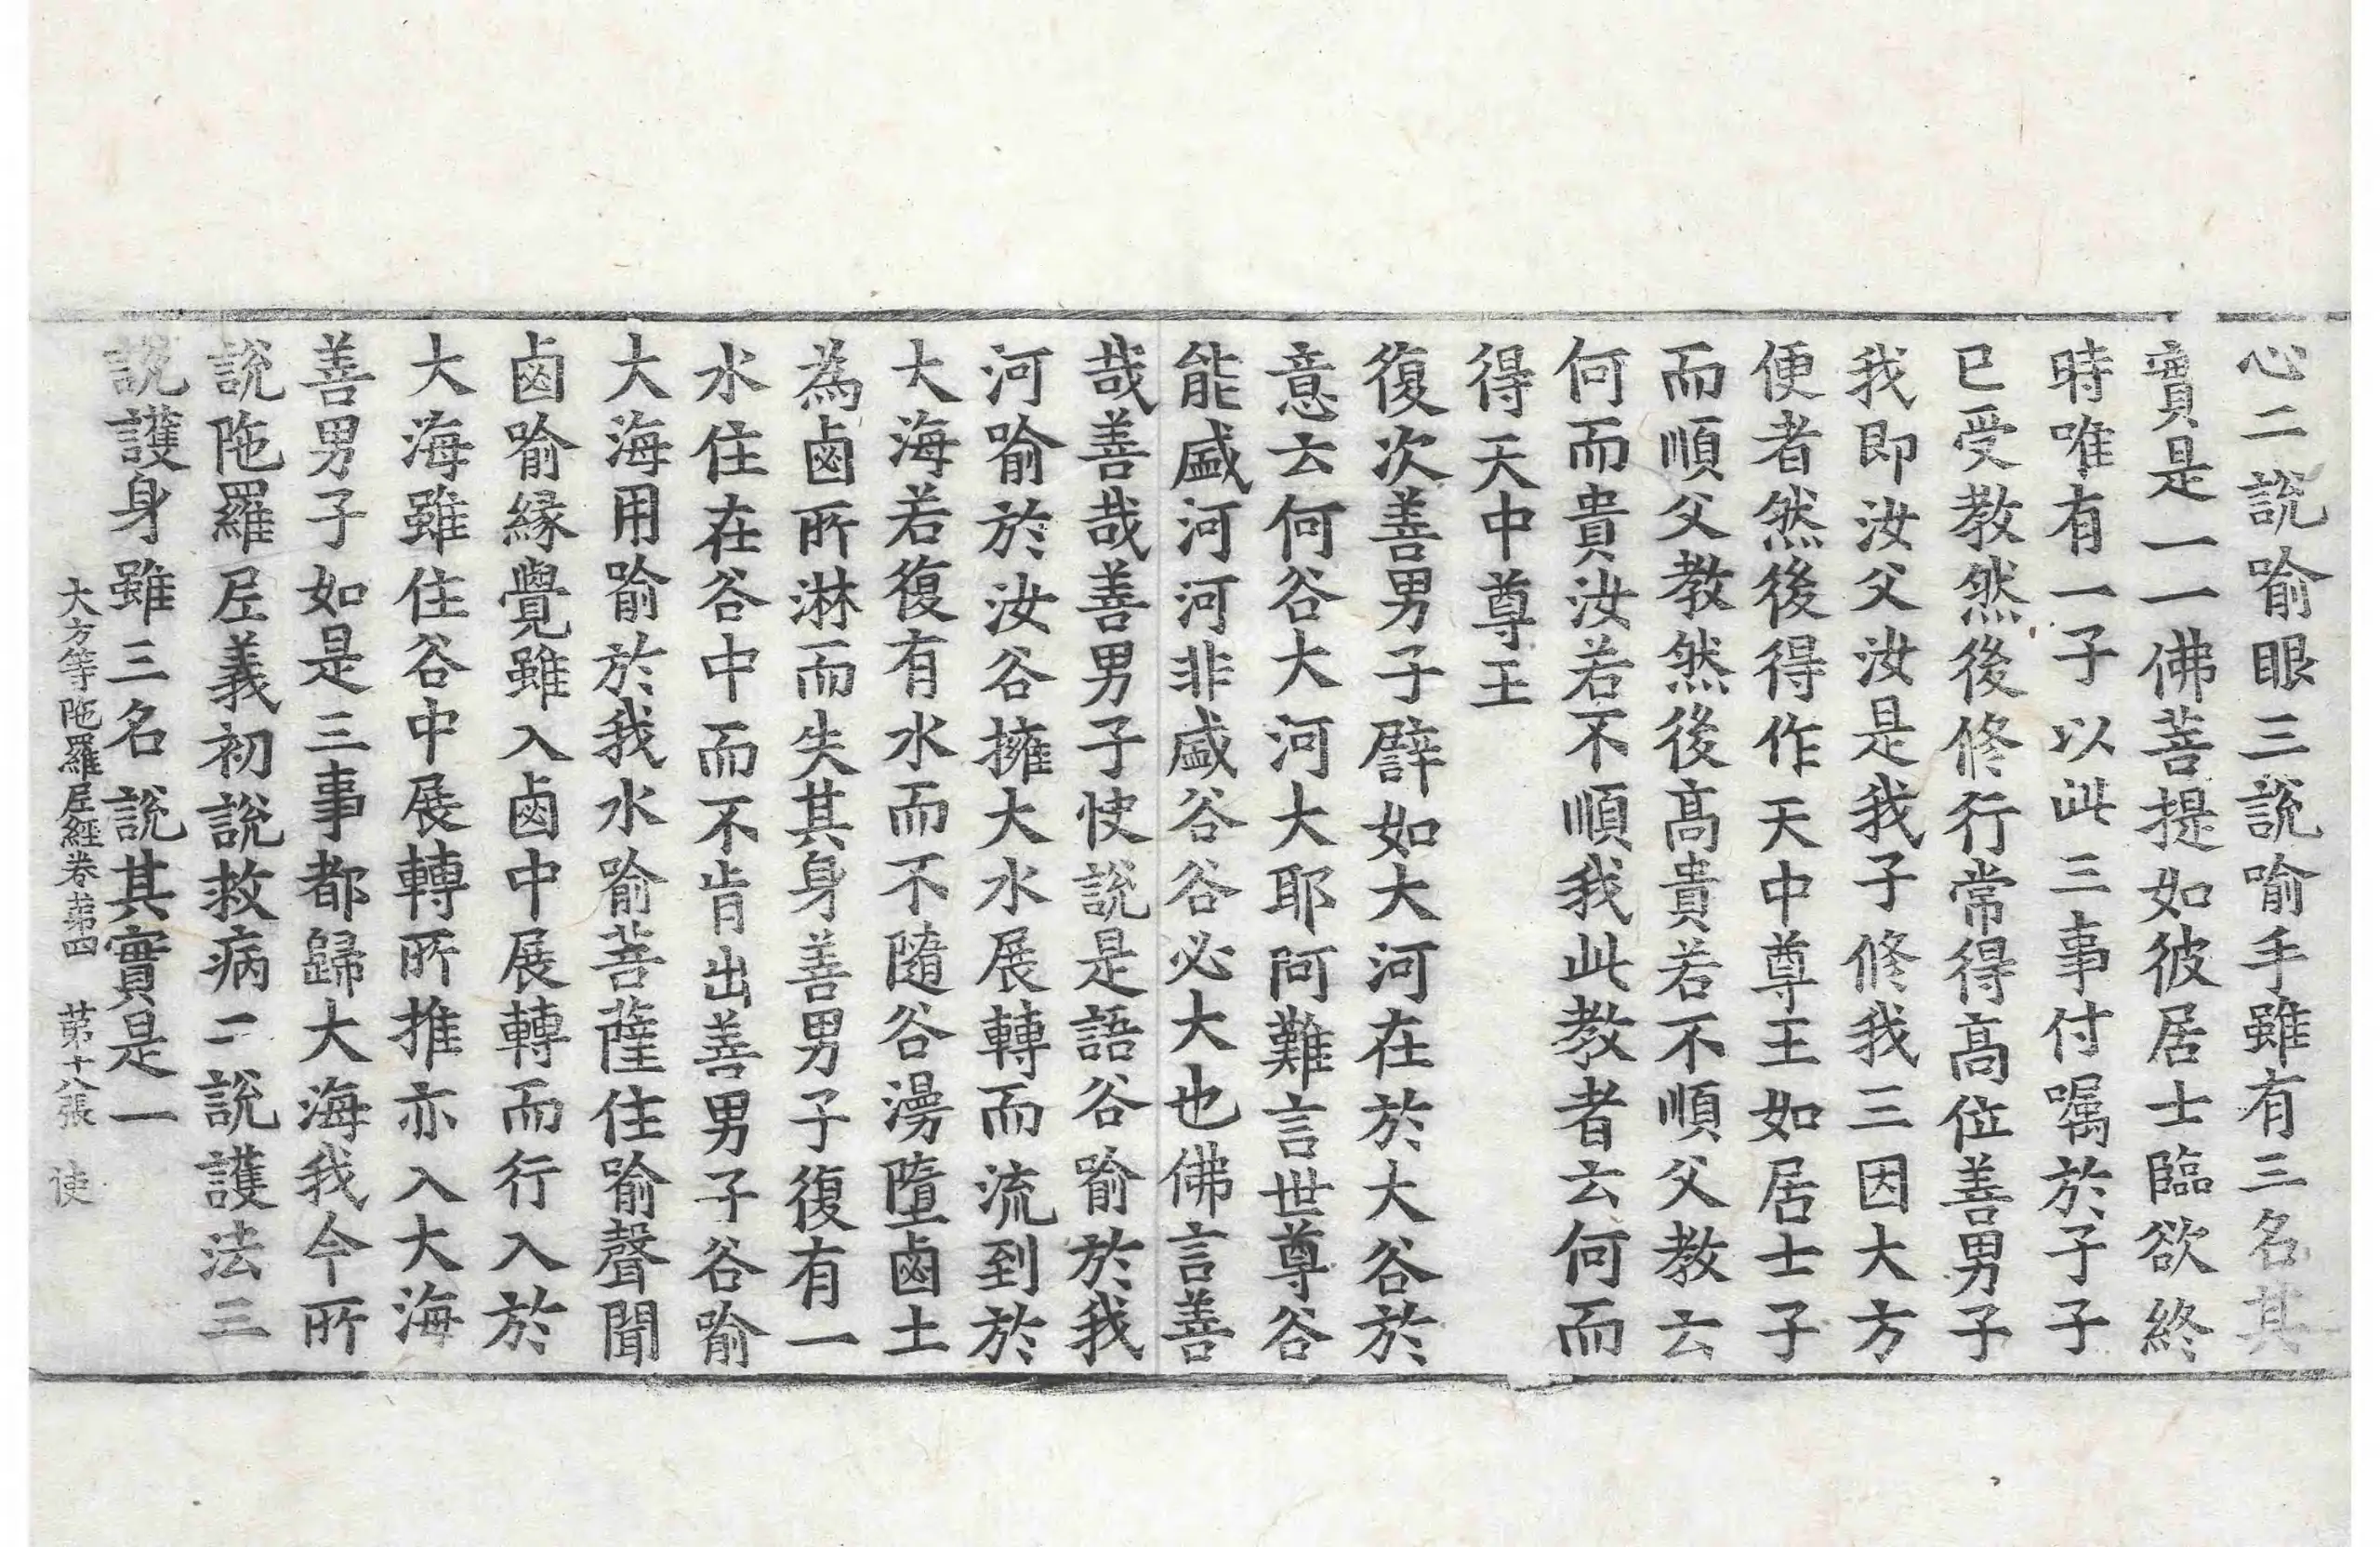 心二說喻眼三說喻手雖有三名其
實是一一佛菩提如彼居士臨欲終
時唯有一子以此三事付嘱於子子
已受教然後修行常得髙位善男子
我即汝父汝是我子修我三因大方
便者然後得作天中尊王如居士子
而順父教然後髙貴若不順父教云
何而貴汝若不順我此教者云何而
得天中尊王
復次善男子譬如大河在於大谷於
意云何谷大河大耶阿難言世尊谷
能盛河河非盛谷谷必大也佛言善
哉善哉善男子快說是語谷喻於我
河喻於汝谷擁大水展轉而流到於
大海若復有水而不隨谷澇墮鹵土
為鹵所淋而失其身善男子復有一
水住在谷中而不肯出善男子谷喻
大海用喻於我水喻菩薩住喻聲聞
鹵喻縁覺雖入鹵中展轉而行入於
大海雖住谷中展轉所推亦入大海
善男子如是三事都歸大海我今所
說陁羅尼義初說救病二說護法三
說護身雖三名說其實是一
大方等陁羅尼經卷苐四　苐十八張　使